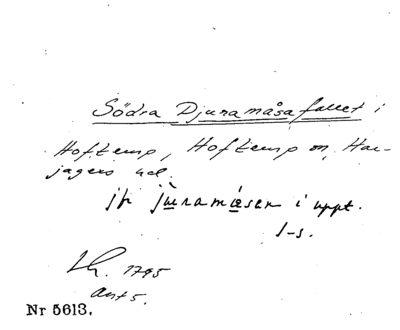 Södra Djuramåsafallet i
Hofterup, Hofterup sn, Har-
jagers hd.
jfr juramåsen i uppt.
1-s.
Lh. 1795
ant 5.
Nr 5613.